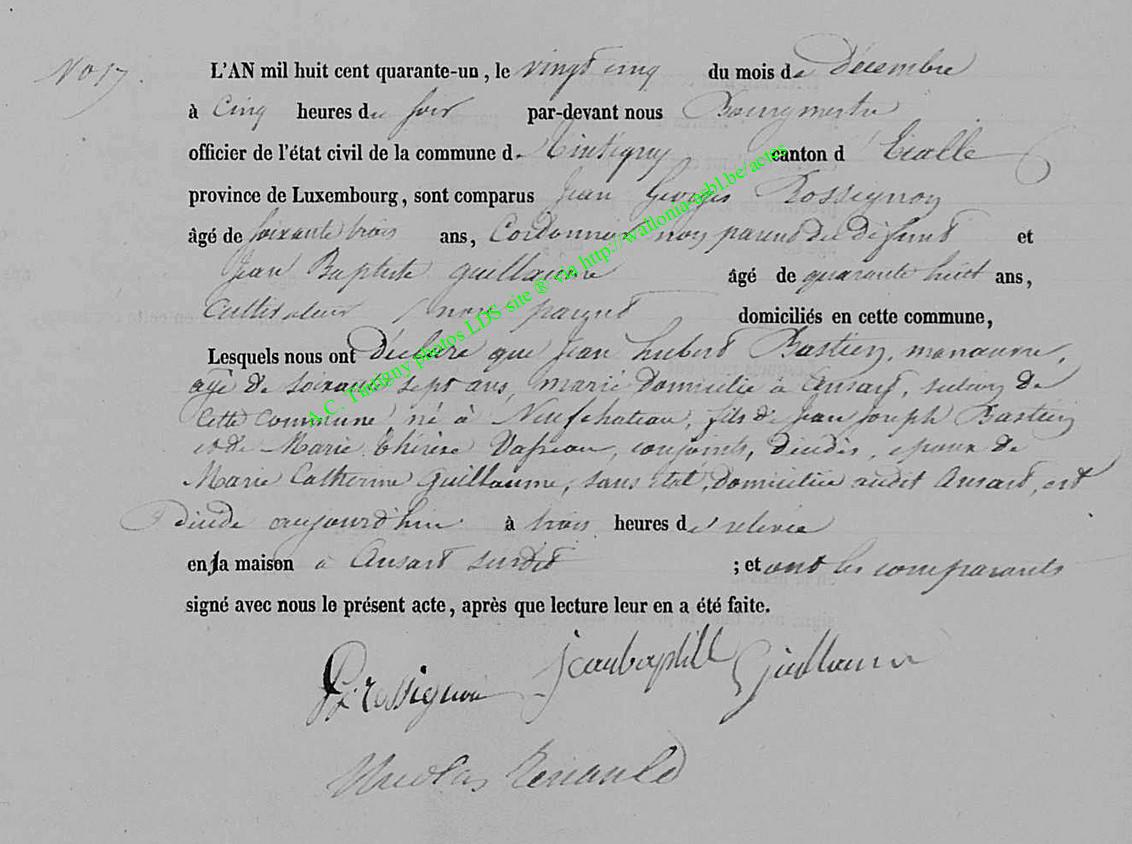 No 17.
L'AN mil huit cent quarante-un, le vingt cinq du mois de Décembre
à cinq heures du soir par-devant nous Bourgmestre
officier de l'état civil de la commune d. Tintigny canton d' Etalle
province de Luxembourg, sont comparus Jean Georges Rossignon
âgé de soixante trois ans, Cordonnier non parent du défunt et
Jean Baptiste guillaume âgé de quarante huit ans,
Cultivateur, non parent domiciliés en cette commune,
Lesquels nous ont déclaré que Jean hubert Bastien, manoeuvre,
agé de soixante sept ans, marié domicilié à Ansart, section de
cette commune, né à Neufchateau, fils de Jean Joseph Bastien
et de Marie Thérèse conjoints, décédés, époux de
Marie Catherine Guillaume, sans état, domiciliée audit Ansart, est
décédé aujourd'hui à trois heures de relevée
en la maison à Ansart susdit ; et ont les comparants
signé avec nous le présent acte, après que lecture leur en a été faite.
rossignon Jeanbaptiste Guillaume
Nicolas Renauld
A.C. Tintigny photos LDS site ® via http://wallonia-asbl.be/actes